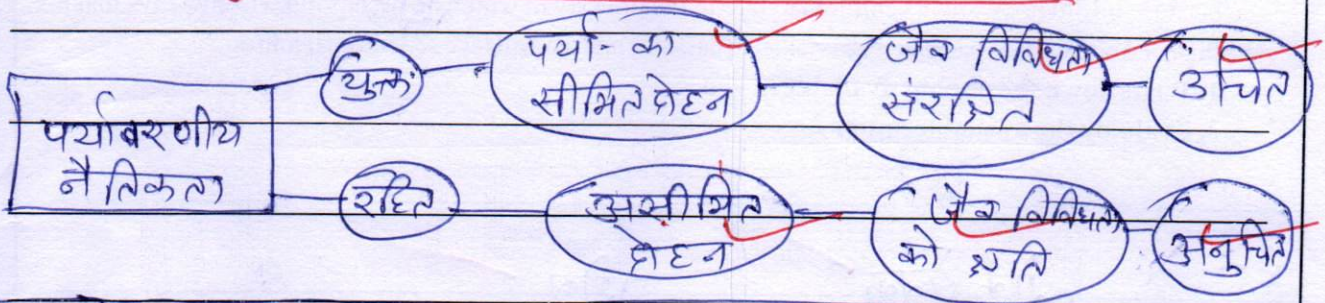 पर्यावरणीय
नैतिकता
युक्त
पर्या- का
सीमित दोहन
जैव विविधता
संरक्षित
उचित
रहित
असीमित
दोहन
जैव विविधता
को क्षति
अनुचित